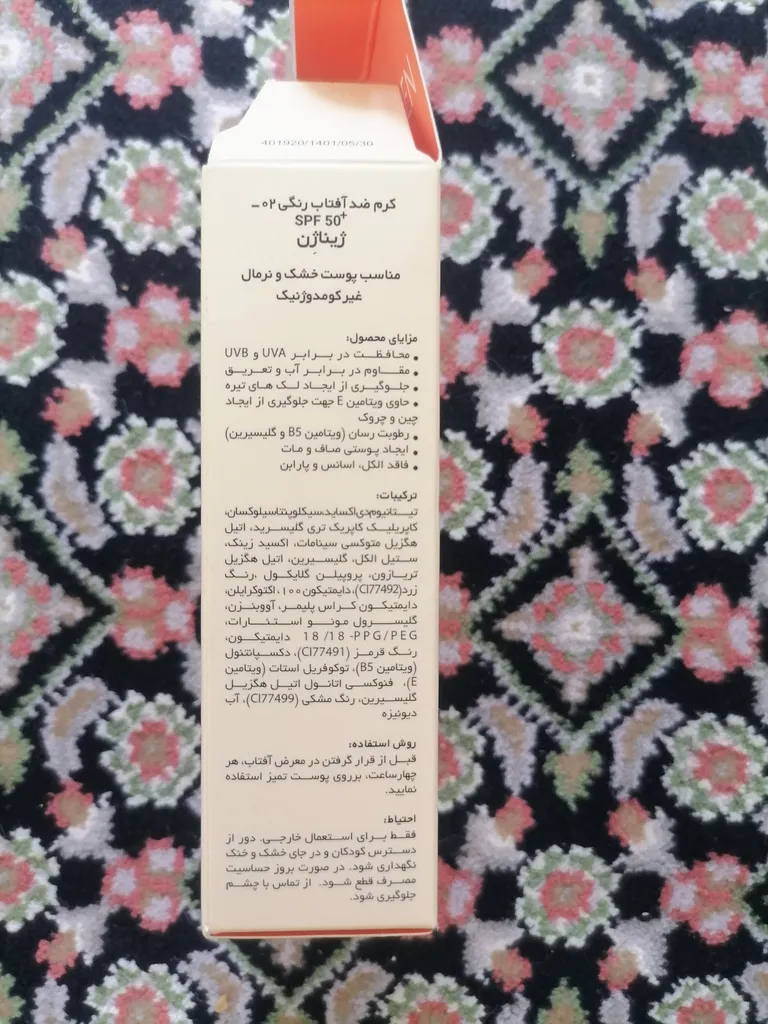 401920/1401/05/30
کرم ضد آفتاب رنگی ۰۲ -
SPF 50+
ژیناژِن
مناسب پوست خشک و نرمال
غیر کومدوژنیک
مزایای محصول:
• محافظت در برابر UVA و UVB
• مقاوم در برابر آب و تعریق
• جلوگیری از ایجاد لک های تیره
• حاوی ویتامین E جهت جلوگیری از ایجاد
چین و چروک
• رطوبت رسان (ویتامین B5 و گلیسیرین)
• ایجاد پوستی صاف و مات
• فاقد الکل، اسانس و پارابن
ترکیبات:
تیتانیوم‌دی‌اکساید، سیکلوپنتاسیلوکسان،
کاپریلیک کاپریک تری گلیسرید، اتیل
هگزیل متوکسی سینامات، اکسید زینک،
ستیل الکل، گلیسیرین، اتیل هگزیل
تریازون، پروپیلن گلایکول ،رنگ
زرد(CI77492)، دایمتیکون۱۰۰، اکتوکرایلن،
دایمتیکون کراس پلیمر، آووبنزن،
گلیسرول مونو استئارات،
PPG/PEG- 18/18 دایمتیکون،
رنگ قرمز (CI77491)، دکسپانتنول
(ویتامین B5)، توکوفریل استات (ویتامین
E)، فنوکسی اتانول اتیل هگزیل
گلیسیرین، رنگ مشکی (CI77499)، آب
دیونیزه
روش استفاده:
قبل از قرار گرفتن در معرض آفتاب، هر
چهارساعت، برروی پوست تمیز استفاده
نمایید.
احتیاط:
فقط برای استعمال خارجی. دور از
دسترس کودکان و در جای خشک و خنک
نگهداری شود. در صورت بروز حساسیت
مصرف قطع شود. از تماس با چشم
جلوگیری شود.